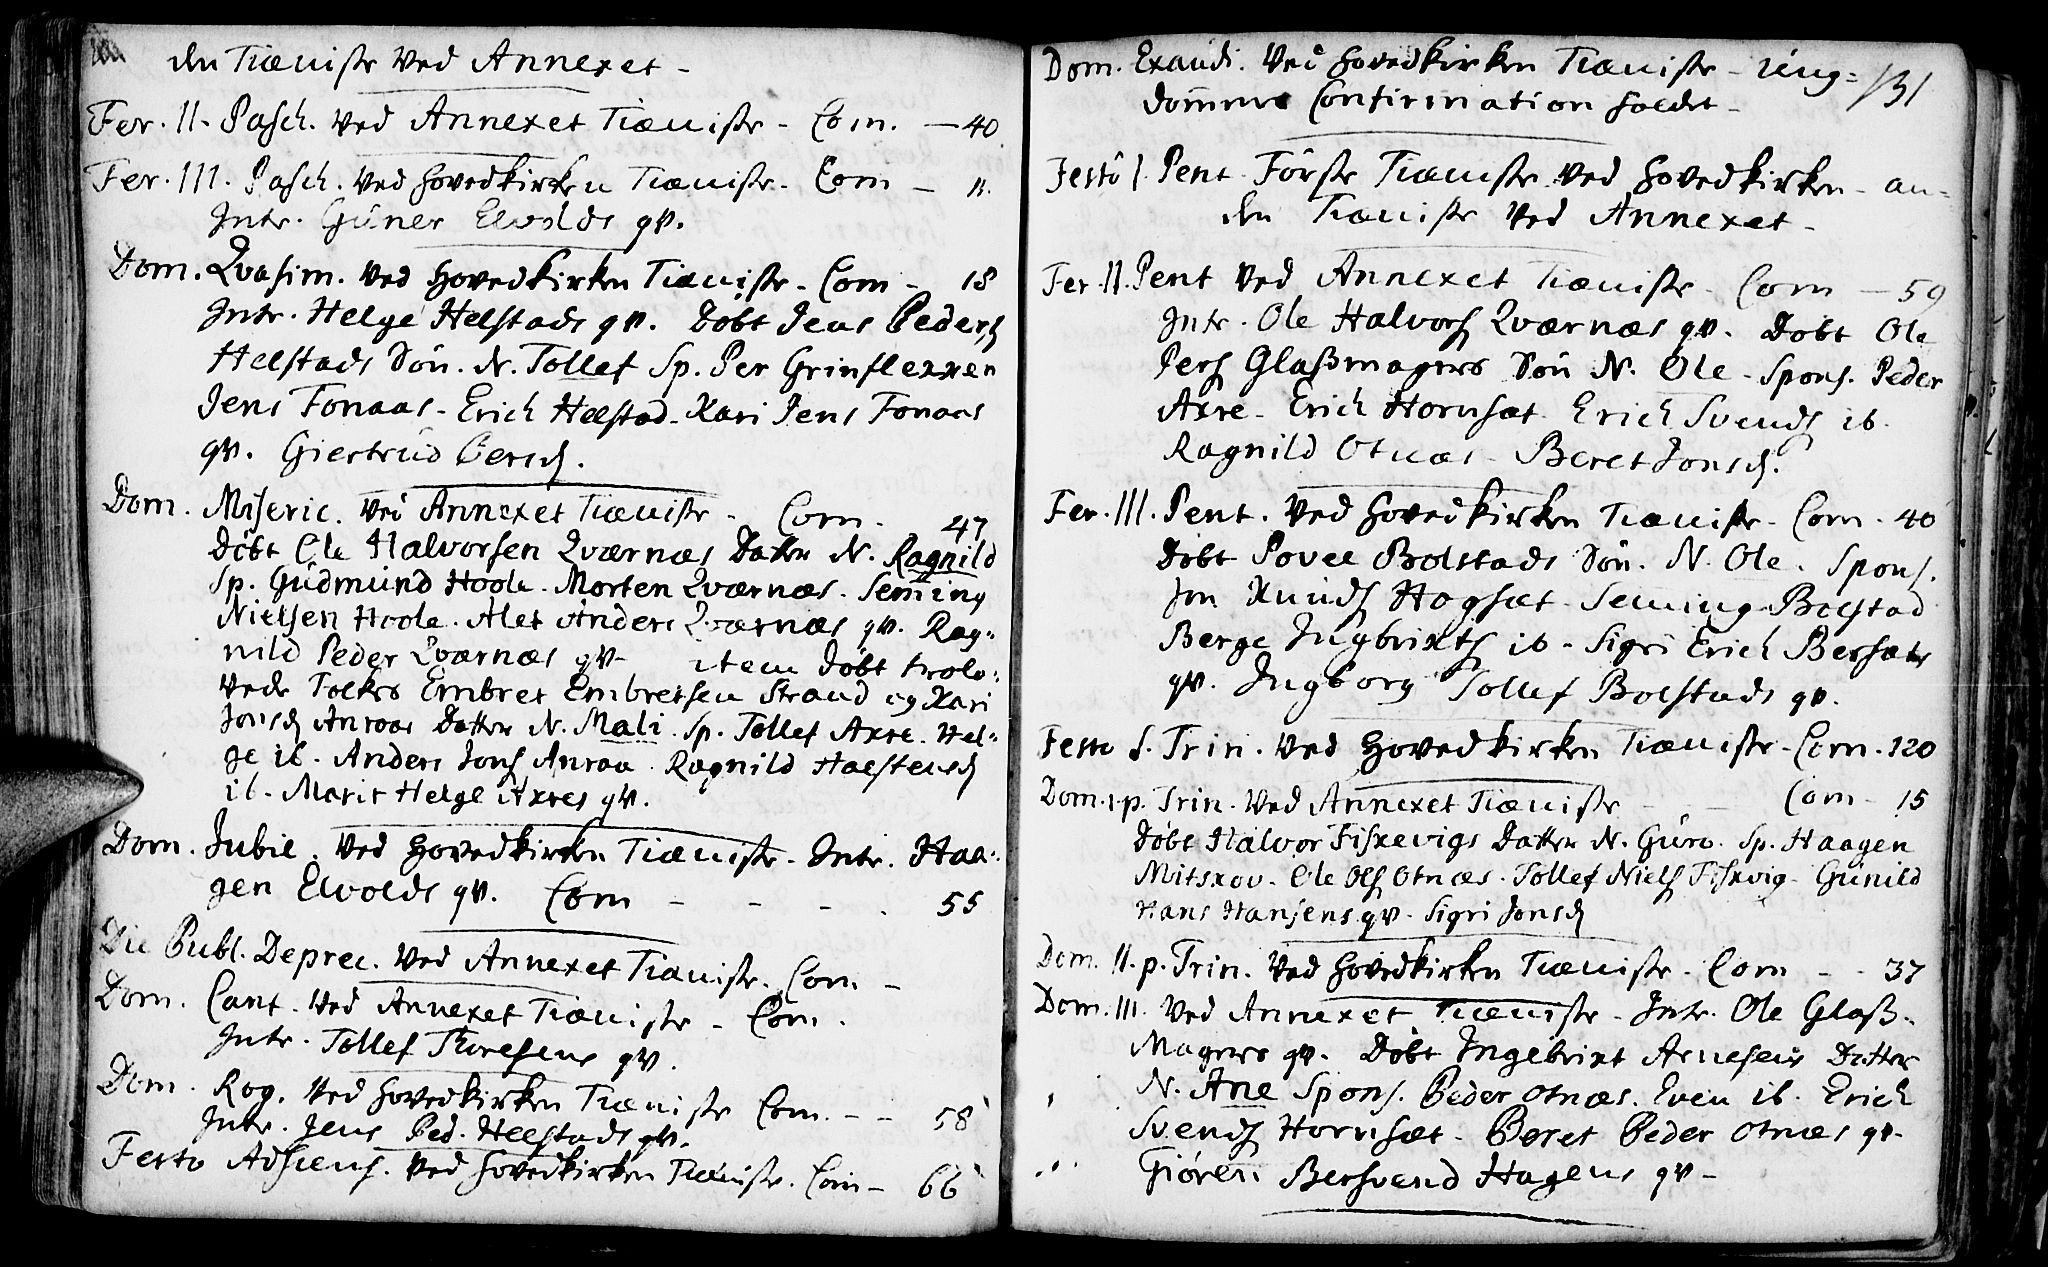 den Tiæniste ved Annexet -
Fer. II. Pasch. ved Annexet Tiæniste - Com. — 40.
Fer. III. Pasch. ved Hovedkirken Tiæniste - Com — 11.
Intr. Guner Elvolds qv.
Dom. Qvasim. ved Hovedkirken Tiæniste - Com - 18
Intr. Helge Helstads qv. Døbt Jens Peders.
Helstads Søn. N. Tollef Sp. Per Grinflexxen
Jens Fonaas - Erich Helstad - Kari Jens Fonaas
qv. Giertrud Persd.
Dom. Miseric. ved Annexet Tiæniste - Com - 47
Døbt Ole Halvorsen Qværnæs Datter N. Ragnild
Sp. Gudmund Hoole - Morten Qværnæs - Seming
Nielsen Hoole. Alet Anders Qværnæs qv. Rag-
nild Peder Qværnæs qv - item døbt trolo-
vede Folkes Embret Embretsen Strand og Kari
Jonsd Anraas Datter N. Mali. Sp. Tollef Axre. Hel-
ge ib. Anders Jons. Anraa. Ragnild Halstensd
ib. Marit Helge Axres qv.
Dom. Jubil. ved Hovedkirken Tiæniste - Intr. Haa-
gen Elvolds qv. Com - - - - 55
Die Publ. Deprec. ved Annexet Tiæniste. Com -
Dom. Cant. ved Annexet Tiæniste - Com.
Intr. Tollef Thoresens qv.
Dom. Rog. ved Hovedkirken Tiæniste Com. - - 58
Intr. Jens Ped. Helstads qv.
Festo Adscens. ved Hovedkirken Tiæniste. Com - 66
Dom. Exaudi. ved Hovedkirken Tiæniste - ung- 131
dommens Confirmation holdet -
Festo S. Pent. Förste Tiæniste ved Hovedkirken - an-
den Tiæniste ved Annexet -
Fer. II. Pent ved Annexet Tiæniste - Com — 59
Intr. Ole Halvors. Qværnæs qv. Døbt Ole
Pers. Glaßmagers Søn N. Ole - Spons. Peder
Axre - Erich Hornsæt - Erich Svends. ib.
Ragnild Otnæs - Beret Jonsd.
Fer. III. Pent. ved Hovedkirken Tiæniste - Com - 40
Døbt Povel Bolstads Søn. N. Ole. Spons.
Jon Knuds. Hogsæt - Seming Bolstad
Berge Ingbrixts. ib - Sigri Erich Bersæts
qv. Ingborg Tollef Bolstads qv.
Festo S. Trin. ved Hovedkirken Tiæniste - Com. 120
Dom. 1. p. Trin. ved Annexet Tiæniste - - Com - 15
Døbt Halvor Fiskevigs Datter N. Guro. Sp. Haagen
Mitskov - Ole Ols. Otnæs - Tollef Niels. Fiskvig - Gunild
Hans Hansens qv - Sigri Jonsd
Dom. II. p. Trin. ved Hovedkirken Tiæniste - Com - - 37
Dom. III. ved Annexet Tiæniste - Intr. Ole Glaß-
Magers qv. Døbt Ingebrixt Arnesens Datter
N. Ane Spons. Peder Otnæs. Even ib. Erich
Svends. Hornsæt - Beret Peder Otnæs qv -
Giøren Bersvend Hagens qv -